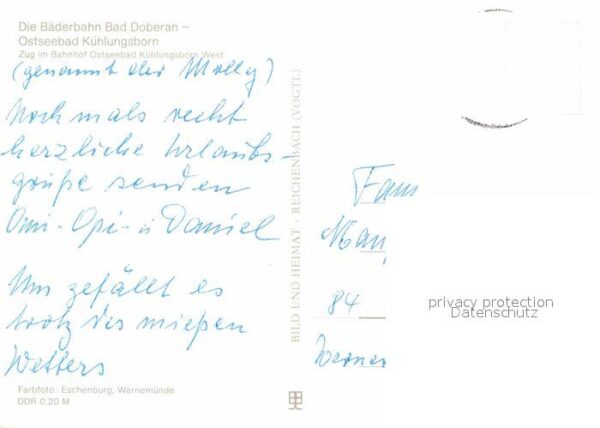 Die Bäderbahn Bad Doberan –
Ostseebad Kühlungsborn
Zug im Bahnhof Ostseebad Kühlungsborn West
(genannt der Molly)
Nochmals recht
herzliche Urlaubs-
grüße senden
Omi - Opi - u Daniel
Uns gefällt es
trotz des mießen
Wetters
Farbfoto: Eschenburg, Warnemünde
DDR 0,20 M
BILD UND HEIMAT · REICHENBACH (VOGTL)
Fam
84
Werner
privacy protection
Datenschutz